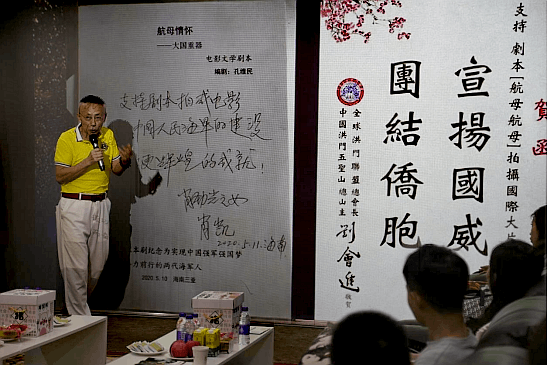 航母情怀
——大国重器
电影文学剧本
编剧：孔维民
支持剧本拍成电影
中国人民海军的建设
更辉煌的成就！
肖劲光之女
肖凯
2020.5.11.海南
本剧纪念为实现中国强军强国梦
力前行的两代海军人
2020.5.10 海南三亚
賀函
支持 劇本[航母航母]拍攝國際大片
宣揚國威
團結僑胞
全球洪門聯盟總會長
中國洪門五聖山總山主
劉會進